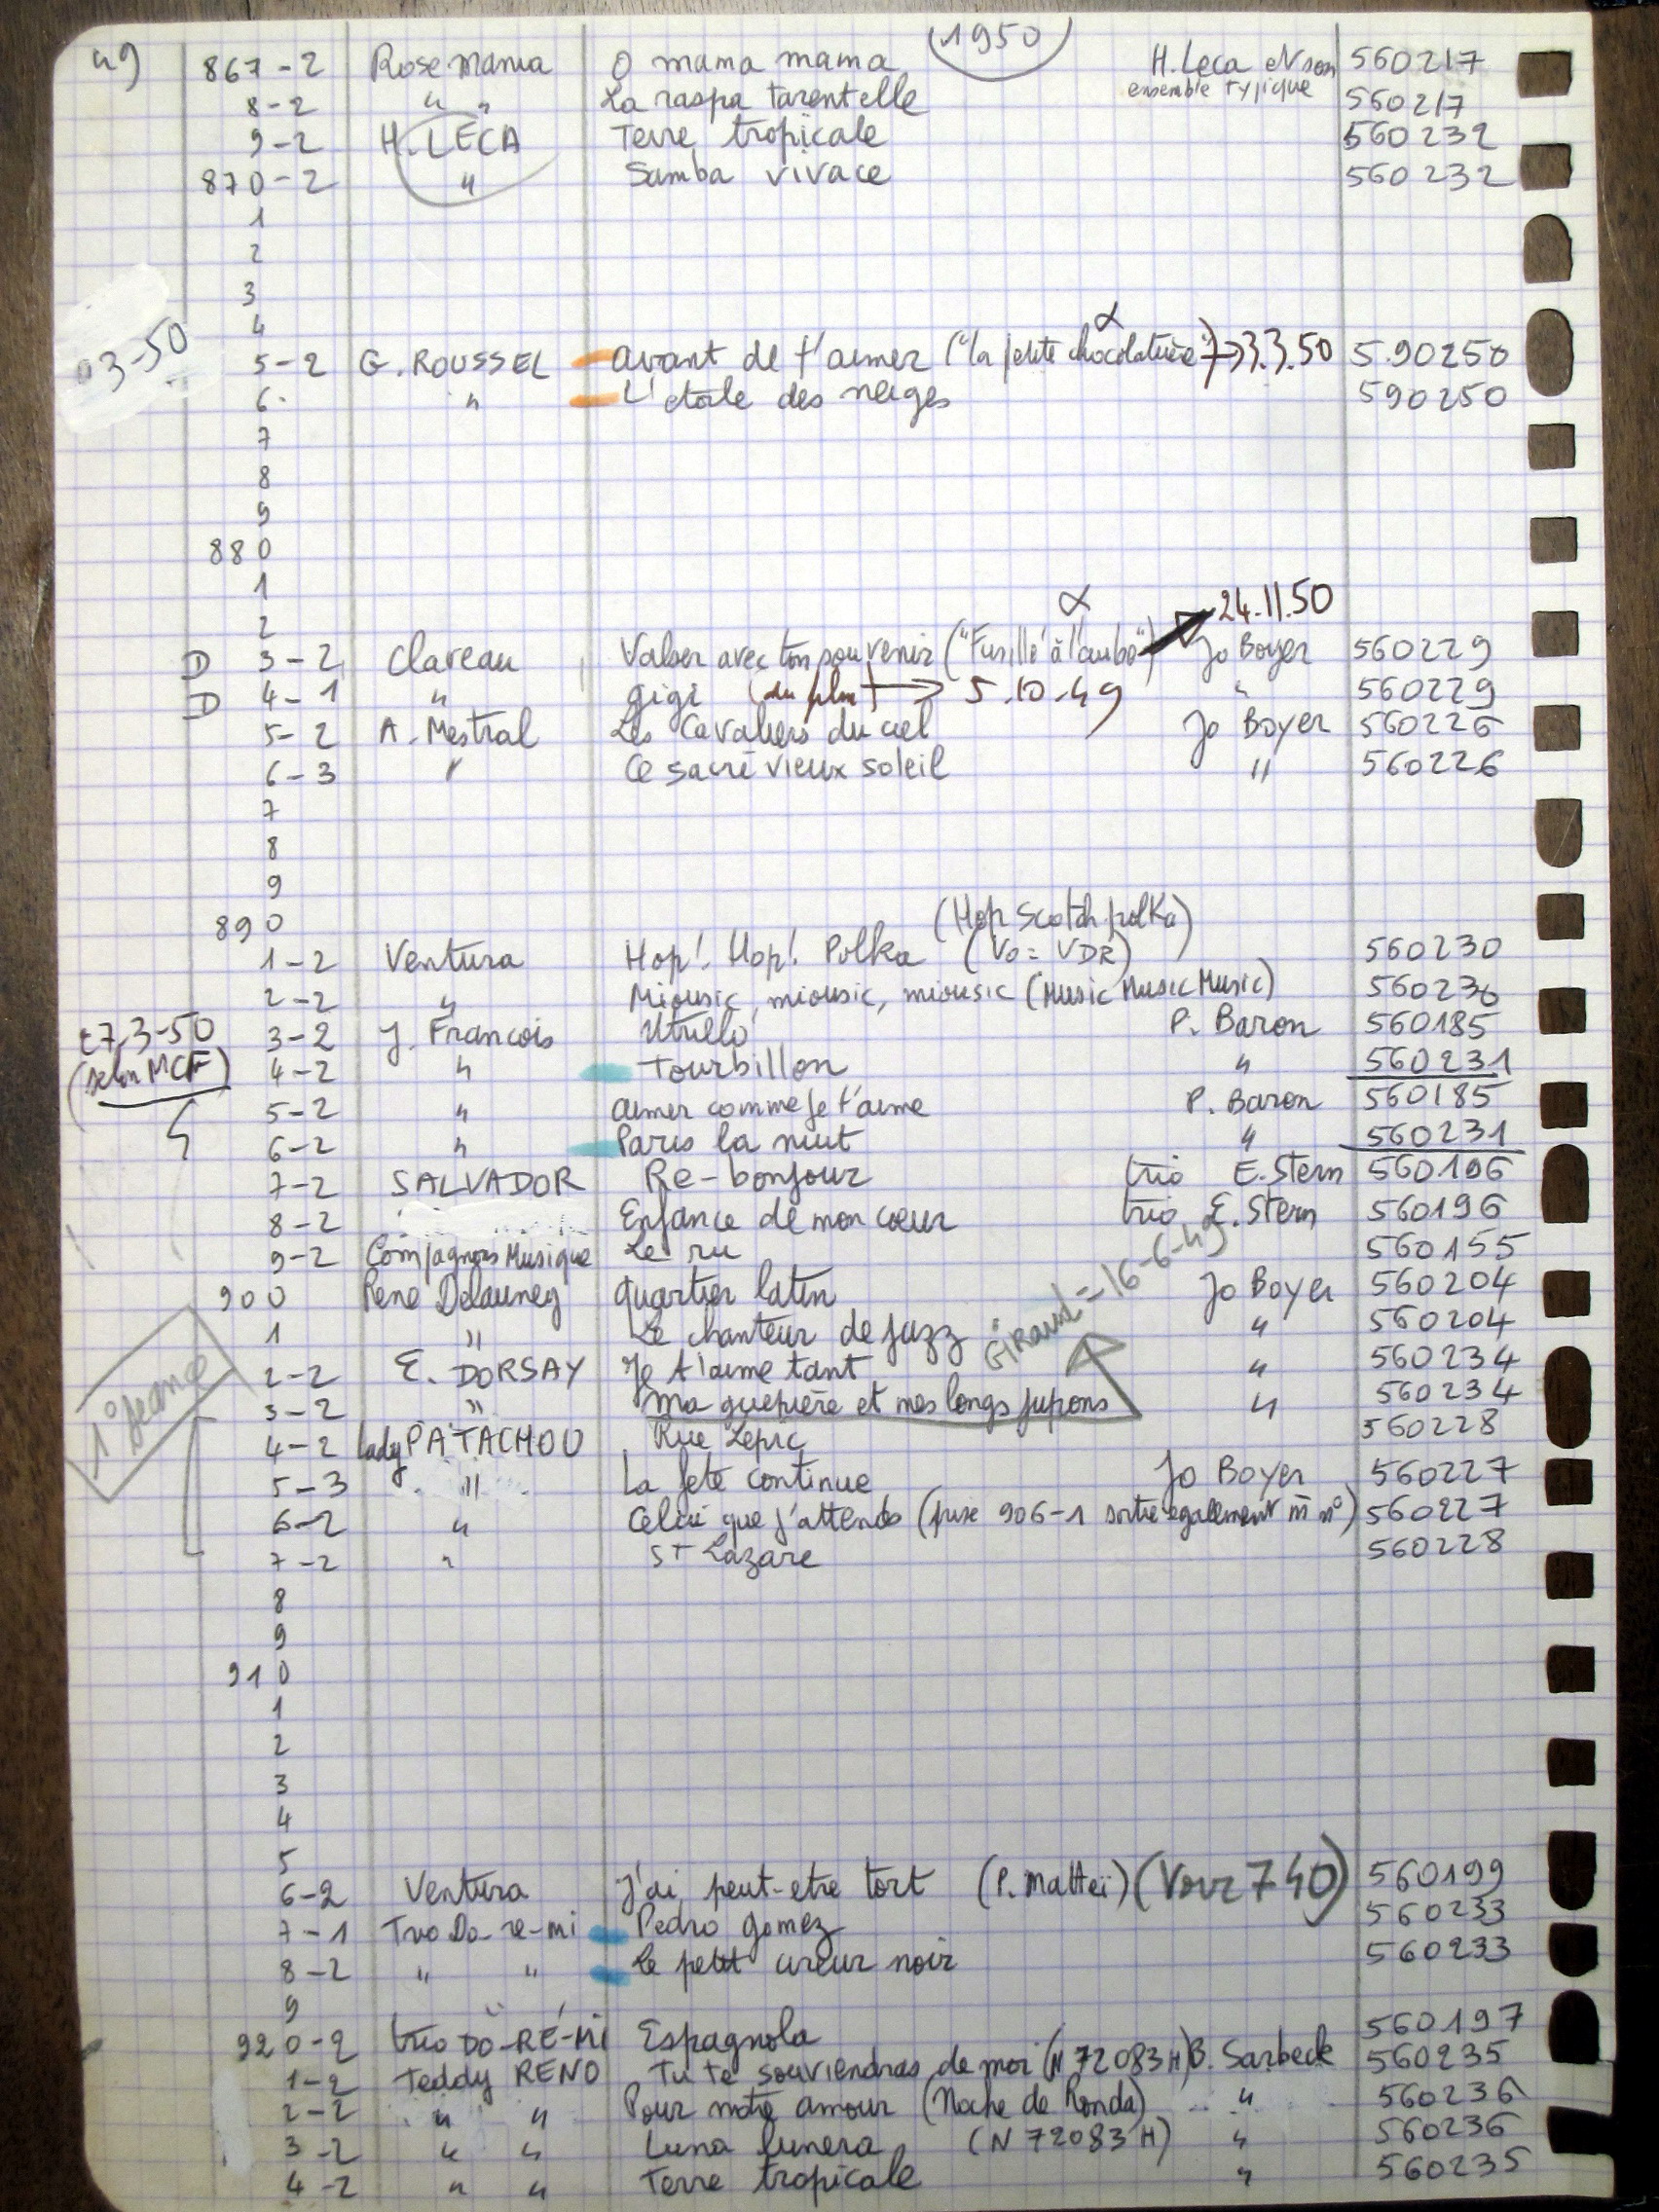 49 (1950)
867-2 Rose Mania O mama mama H. Leca et son 560217
ensemble typique
8-2 " " La raspa tarentelle 560217
9-2 H. LECA Terre tropicale 560232
870-2 " Samba vivace 560232
1
2
3
4
3-50
5-2 G. ROUSSEL avant de t'aimer ("la petite chocolatière") → 3.3.50 5.90250
6. " L'etoile des neiges 590250
7
8
9
880
1
2 24.11.50
D 3-2 Claveau Valser avec ton souvenir ("Fusillé à l'aube") Jo Boyer 560229
D 4-1 " gigi (du film) → 5.10.49 " 560229
5-2 A. Mestral Les Cavaliers du ciel Jo Boyer 560226
6-3 " Ce sacré vieux soleil " 560226
7
8
9
890 (Hop Scotch polka)
1-2 Ventura Hop! Hop! Polka (Vo = VDR) 560230
2-2 " Miousic, miousic, miousic (Music Music Music) 560230
27.3-50 3-2 J. Francois Utrillo P. Baron 560185
(selon MCF) 4-2 " Tourbillon " 560231
5-2 " aimer comme je t'aime P. Baron 560185
6-2 " Paris la nuit " 560231
7-2 SALVADOR Re-bonjour trio E. Stern 560196
8-2 Enfance de mon cœur trio E. Stern 560196
9-2 Compagnons Musique Le ru 560155
900 René Delauney Quartier latin Jo Boyer 560204
1 " Le chanteur de jazz " 560204
GIRAUD = 16-6-49
2-2 E. DORSAY Je t'aime tant " 560234
3-2 " Ma guepière et mes longs jupons " 560234
1° séance
4-2 lady PATACHOU Rue Lepic 560228
5-3 " La fete continue Jo Boyer 560227
6-2 " Celui que j'attends (prise 906-1 sortie également m n°) 560227
7-2 " St Lazare 560228
8
9
910
1
2
3
4
5
6-2 Ventura J'ai peut-etre tort (P. Mattei) (Voir 740) 560199
7-1 Trio Do-re-mi Pedro gomez 560233
8-2 " " Le petit cireur noir 560233
9
920-2 trio DO-RÉ-MI Espagnola 560197
1-2 Teddy RENO Tu te souviendras de moi (N 72083 H) B. Sarbeck 560235
2-2 " " Pour notre amour (Noche de Ronda) " 560236
3-2 " " Luna lunera (N 72083 H) " 560236
4-2 " " Terre tropicale " 560235